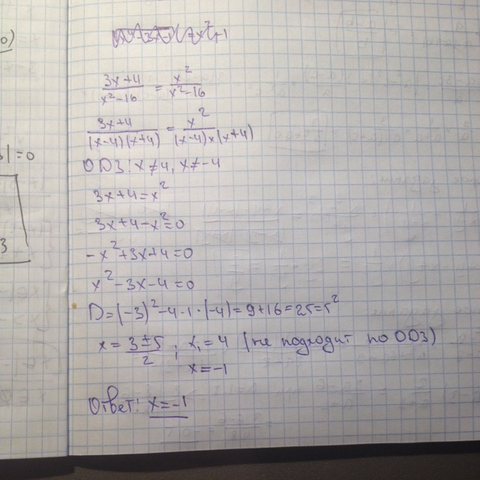 0)
3x+4/x²-16 = x²/x²-16
3x+4/(x-4)(x+4) = x²/(x-4)x(x+4)
ОДЗ: x≠4, x≠-4
3x+4=x²
3x+4-x²=0
-x²+3x+4=0
x²-3x-4=0
D=(-3)²-4·1·(-4)=9+16=25=5²
x=3±5/2; x₁=4 (не подходит по ОДЗ)
x=-1
Ответ: x=-1
|=0
3